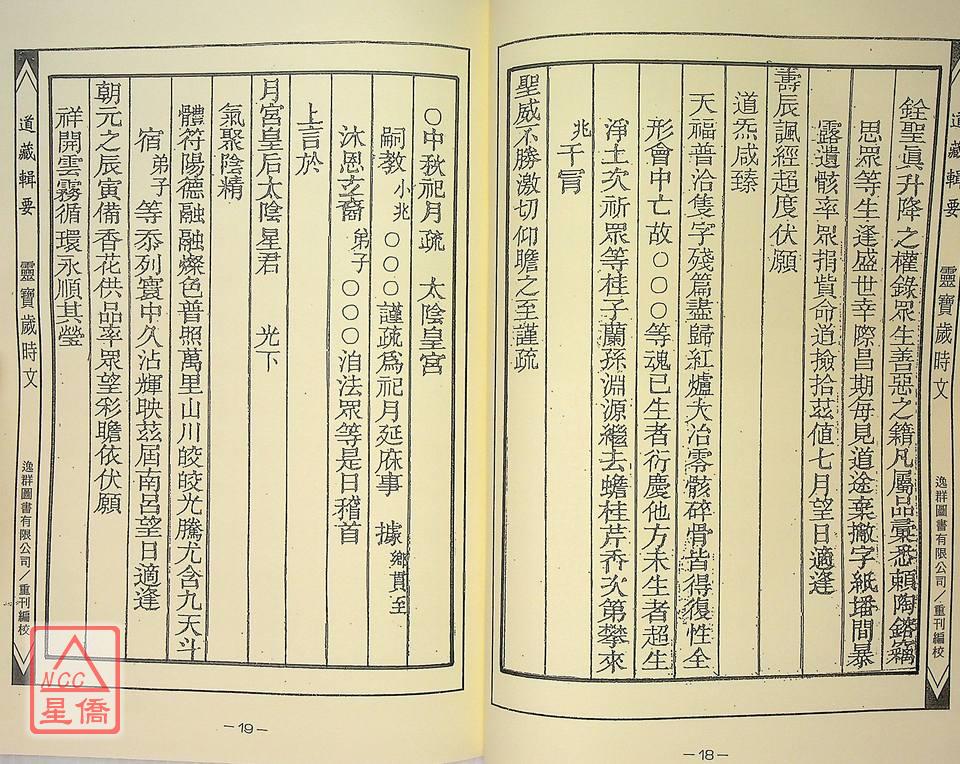 道藏輯要 靈寶歲時文 逸群圖書有限公司／重刊編校
銓聖眞升降之權錄眾生善惡之籍凡屬品彙悉頼陶鎔竊
思眾等生逢盛世幸際昌期每見道途棄撇字紙墦間暴
露遺骸率眾捐貲命道撿拾茲值七月望日適逢
壽辰諷經超度伏願
道炁咸臻
天福普洽隻字殘篇盡歸紅爐大冶零骸碎骨皆得復性全
形會中亡故○○○等魂已生者衍慶他方未生者超生
淨土次祈眾等桂子蘭孫淵源繼去蟾桂芹香次第攀來
兆干冐
聖威不勝激切仰瞻之至謹疏
－18－
○中秋祀月疏 太陰皇宮
嗣教小兆○○○謹疏爲祀月延庥事 據鄉貫至
沐恩玄裔弟子○○○洎法眾等是日稽首
上言於
月宮皇后太陰星君 光下
氣聚陰精
體符陽德融融燦色普照萬里山川皎皎光騰尤含九天斗
宿弟子等忝列寰中久沾輝映茲屆南呂望日適逢
朝元之辰寅備香花供品率眾望彩瞻依伏願
祥開雲霧循環永順其瑩
道藏輯要 靈寶歲時文 逸群圖書有限公司／重刊編校
－19－
NCC
星僑